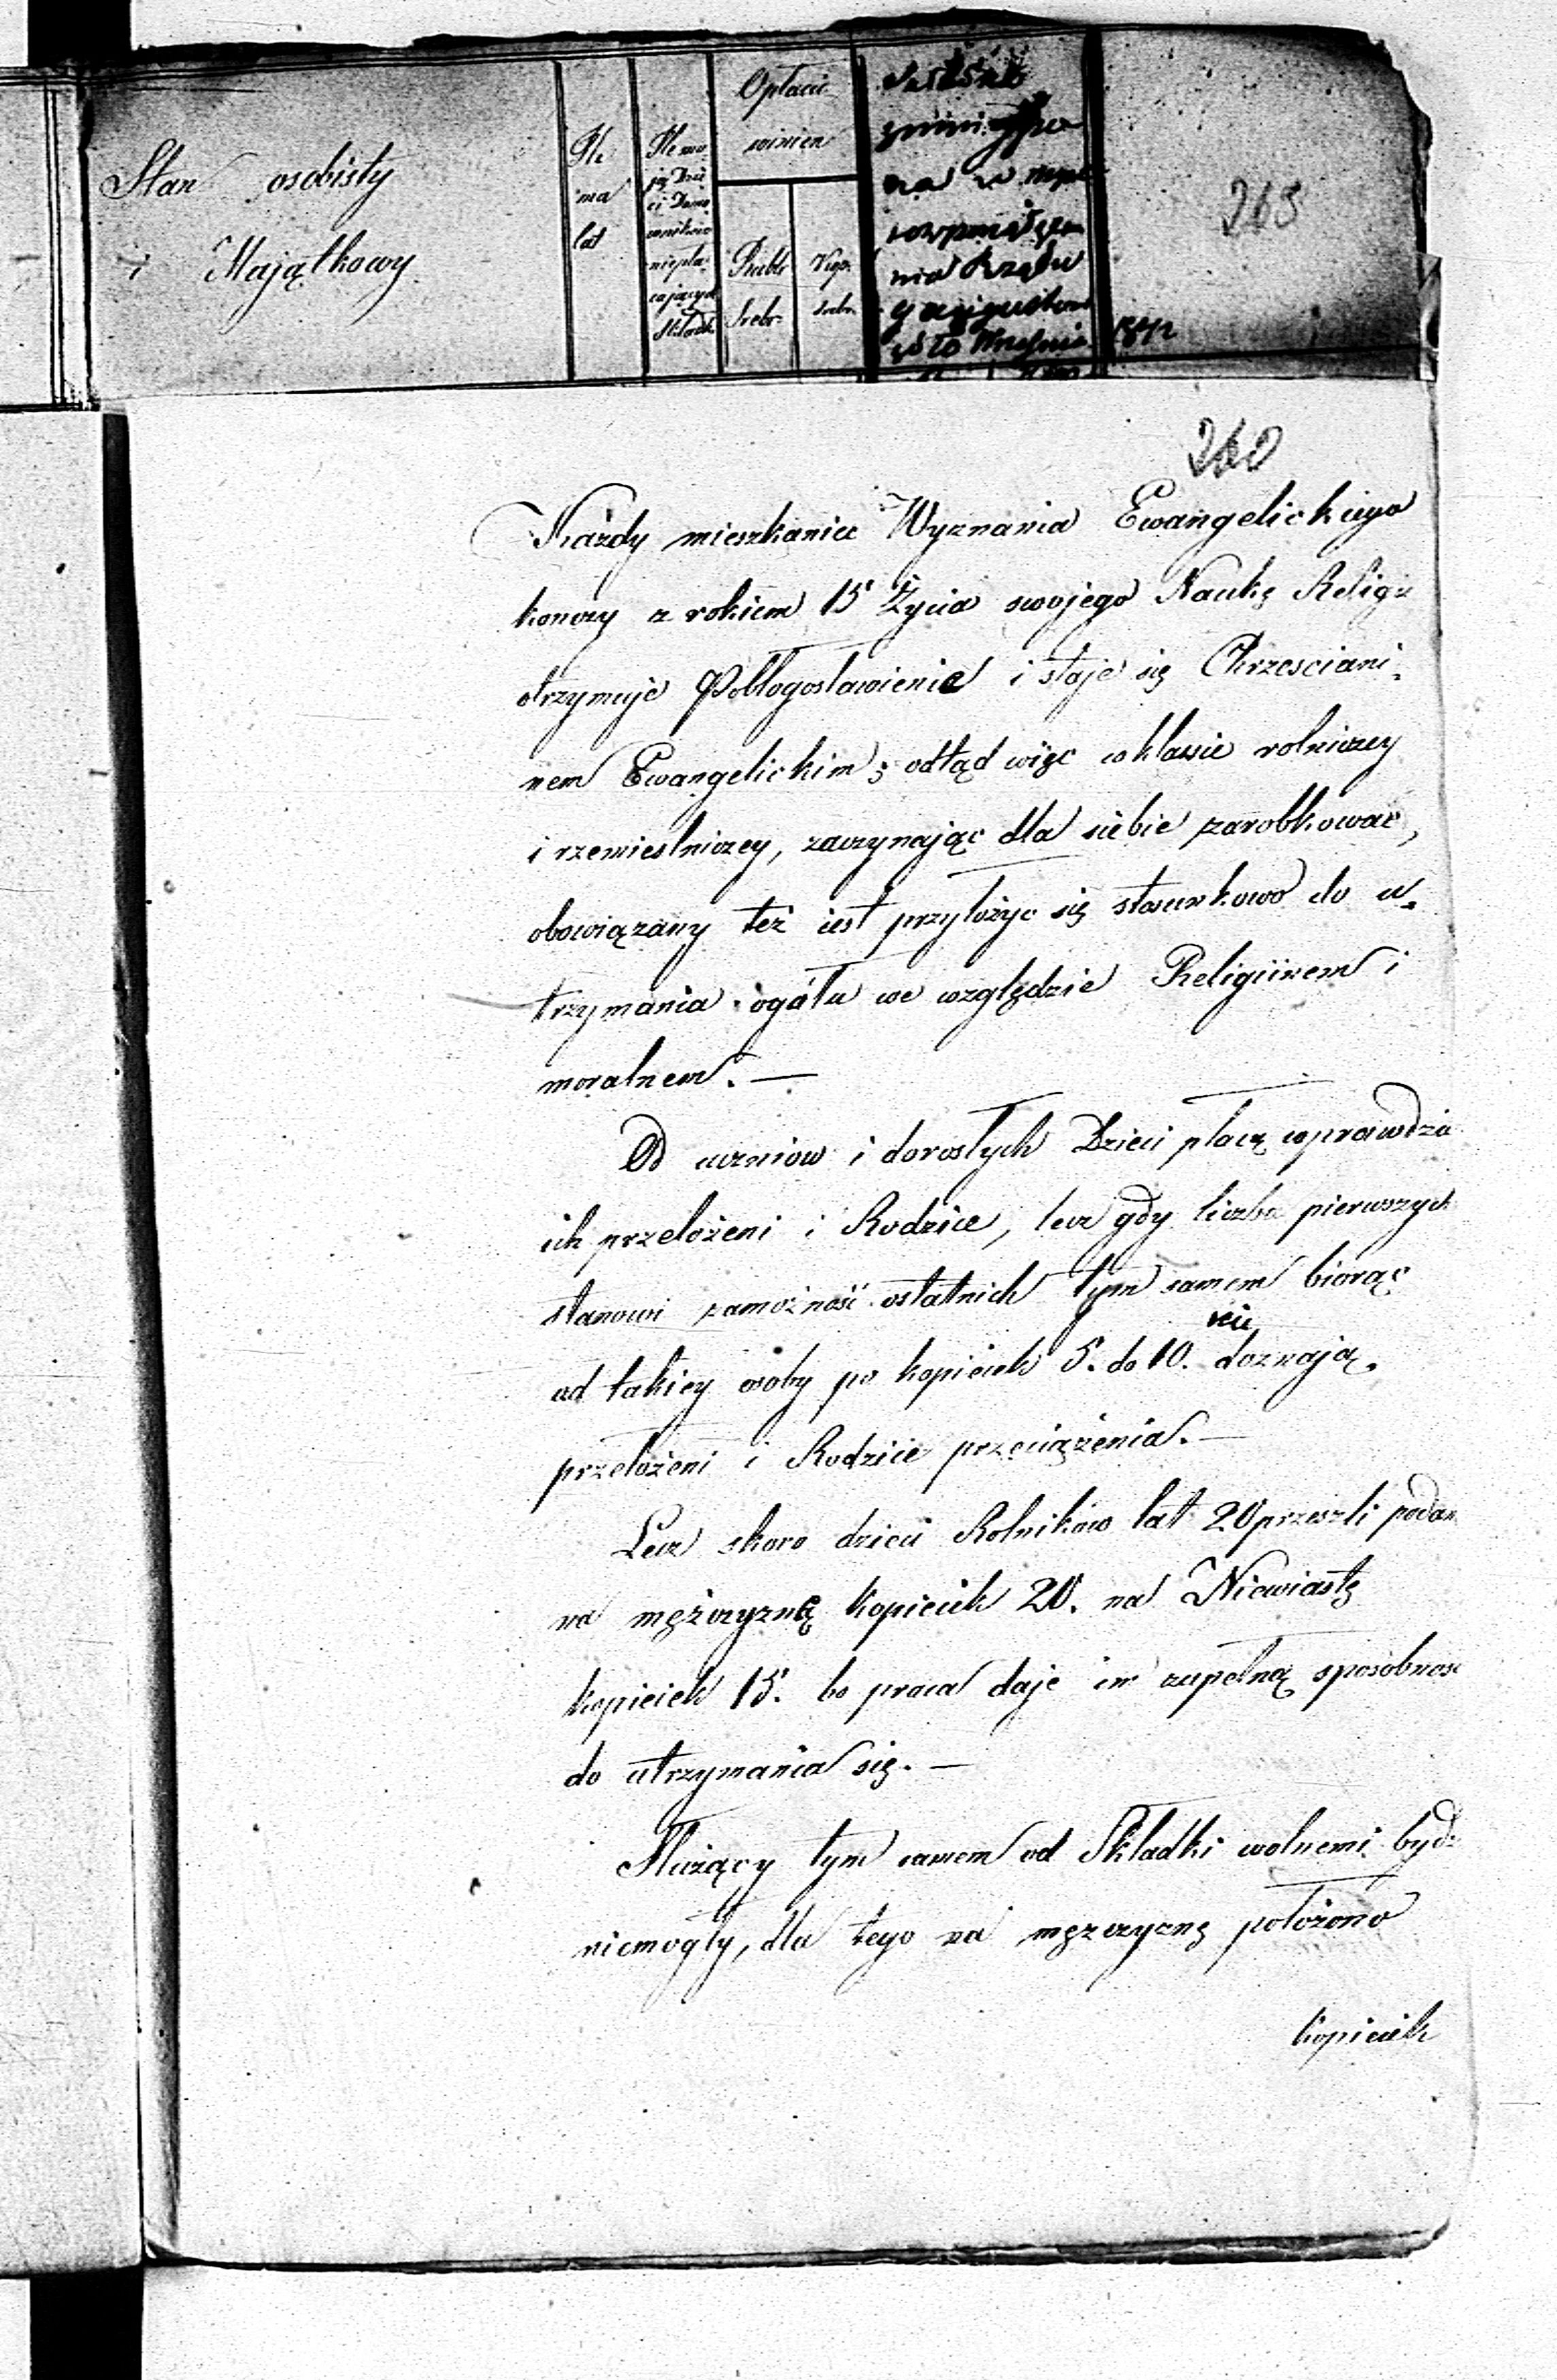 Stan osobisty
i Majątkowy
Ile
ma
lat
Ile ma
ją Dzie
ci Domo
wników
niepła
cających
Składek
Opłacić
winien
Rubli
Srebr.
Kop.
Srebr.
265
260
Każdy mieszkaniec Wyznania Ewangelickiego
konczy z rokiem 15 Życia swojego Naukę Religii
otrzymuje Pobłogosławienie i staje się Chrzesciani-
nem Ewangelickim; odtąd więc w klassie rolniczey
i rzemieslniczey, zaczynając dla siebie zarobkować,
obowiązany też iest przyłożyc się stosunkowo do u-
trzymania ogółu we względzie Religiinem i
moralnem. —
Od uczniow i dorosłych Dzieci płacą wprawdzie
ich przełożeni i Rodzice, lecz gdy liczba pierwszych
stanowi zamożność ostatnich tym samem biorąc
od takiey osoby po kopieiek 5. do 10. nie doznają
przełożeni i Rodzice przeciążenia. —
Lecz skoro dzieci Rolników lat 20 przeszli podan
na mężczyznę kopieiek 20. na Niewiastę
kopieiek 15. bo praca daje im zupełną sposobnosc
do utrzymania się. —
Służący tym samem od Składki wolnemi bydz
niemogły, dla tego na mężczyznę położono
kopieiek